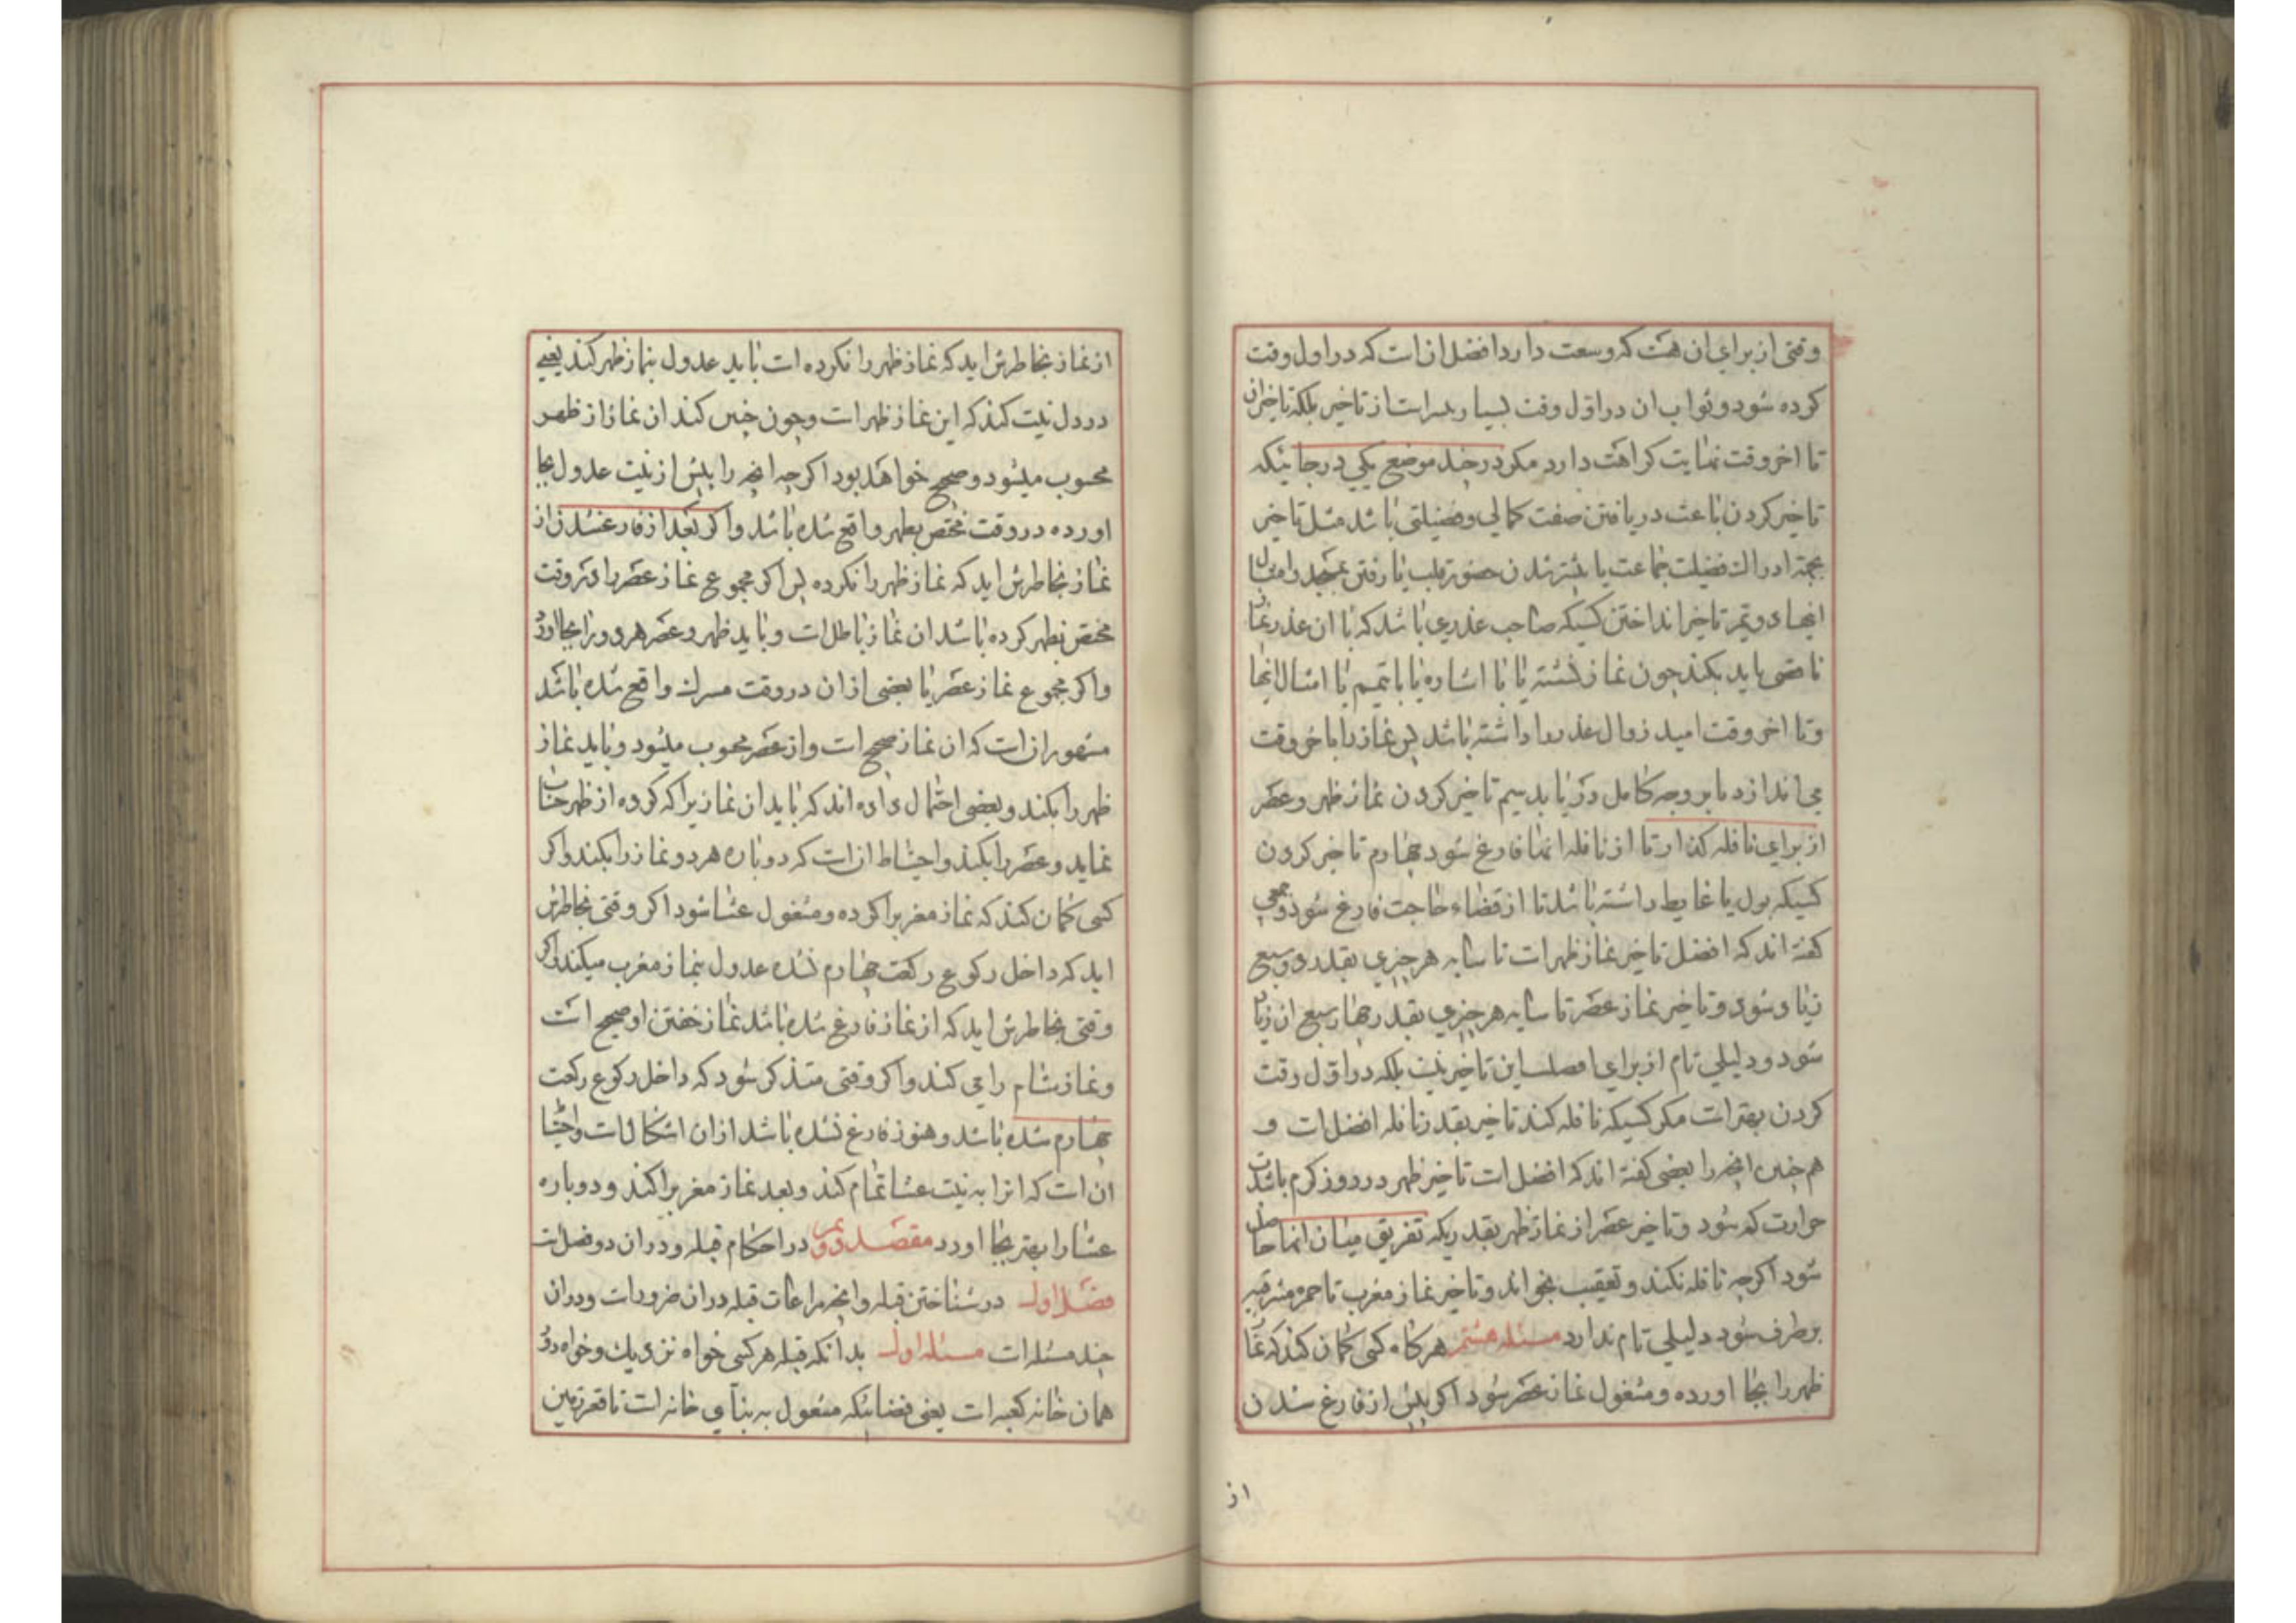 وقتی از برای ان هست که وسعت دارد افضل ان است که در اول وقت
کرده شود و ثواب ان در اوّل وقت بسیار بهتر است از تاخیر بلکه تاخیر ان
تا اخر وقت نهایت کراهت دارد مکر در چند موضع یکی در جائیکه
تاخیر کردن باعث دریافتن صفت کمالی و فضیلتی باشد مثل تاخیر
بجهة ادراك فضیلت جماعت یا بیشتر شدن حضور قلب یا رفتن بمسجد و امثال
اینها دویّم تاخیر انداختن کسیکه صاحب عذری باشد که با ان عذر نماز
ناقصی باید بکند چون نماز نشسته یا با اشاره یا با تیمم یا امثال انها
و تا اخر وقت امید زوال عذر را داشته باشد پس نماز را باخر وقت
می اندازد تا بر وجه کامل دریابد سیم تاخیر کردن نماز ظهر و عصر
از برای نافله کذار تا از نافله انها فارغ شود چهارم تاخیر کردن
کسیکه بول یا غایط داشته باشد تا از قضاء حاجت فارغ شود و جمعی
کفته اند که افضل تاخیر نماز ظهر است تا سایه هر چیزی بقدر دو سبع
زیاد شود و تاخیر نماز عصر تا سایه هر چیزی بقدر چهار سبع ان زیاد
شود و دلیلی تام از برای افضلیت این تاخیر نیست بلکه در اوّل وقت
کردن بهتر است مکر کسیکه نافله کند تاخیر بقدر نافله افضل است و
هم چنین انچه را بعضی کفته اند که افضل است تاخیر ظهر در روز کرم باشدت
حرارت که شود و تاخیر عصر از نماز ظهر بقدریکه تفریق میان انها حاصل
شود اکرچه نافله نکند و تعقیب نخواند و تاخیر نماز مغرب تا حمره مشرقیه
برطرف شود دلیلی تام ندارد مسئله هشتم هرکاه کسی کمان کند که نماز
ظهر را بجا اورده و مشغول نماز عصر شود اکر پیش از فارغ شدن
از
از نماز بخاطرش اید که نماز ظهر را نکرده است باید عدول بنماز ظهر کند یعنی
در دل نیت کند که این نماز ظهر است و چون چنین کند ان نماز از ظهر
محسوب میشود و صحیح خواهد بود اکرچه انچه را پیش از نیت عدول بجا
اورده در وقت مختص بظهر واقع شده باشد و اکر بعد از فارغ شدن از
نماز بخاطرش اید که نماز ظهر را نکرده پس اکر مجموع نماز عصر را در وقت
مختص بظهر کرده باشد ان نماز باطل است و باید ظهر و عصر هر دو را بجا اورد
و اکر مجموع نماز عصر یا بعضی از ان در وقت مشترك واقع شده باشد
مشهور ان است که ان نماز صحیح است و از عصر محسوب میشود و باید نماز
ظهر را بکند و بعضی احتمال داده اند که باید ان نمازیرا که کرده از ظهر حساب
نماید و عصر را بکند و احتیاط ان است که دوباره هر دو نماز را بکند و اکر
کسی کمان کند که نماز مغربرا کرده و مشغول عشا شود اکر وقتی بخاطرش
اید که داخل رکوع رکعت چهارم نشده عدول بنماز مغرب میکند و اکر
وقتی بخاطرش اید که از نماز فارغ شده باشد نماز خفتن او صحیح است
و نماز شام را می کند و اکر وقتی متذکر شود که داخل رکوع رکعت
چهارم شده باشد و هنوز فارغ نشده باشد از ان اشکال است و احتیاط
ان است که انرا به نیت عشا تمام کند و بعد نماز مغربرا کند و دوباره
عشا را بهتر بجا اورد مقصد دویّم در احکام قبله و در ان دو فصل است
فصل اول در شناختن قبله و انچه مراعات قبله در ان ضرور است و در ان
چند مسئله است مسئله اول بدانکه قبله هر کسی خواه نزدیك و خواه دور
همان خانه کعبه است یعنی فضائیکه مشغول به بنآی خانه است تا قعر زمین